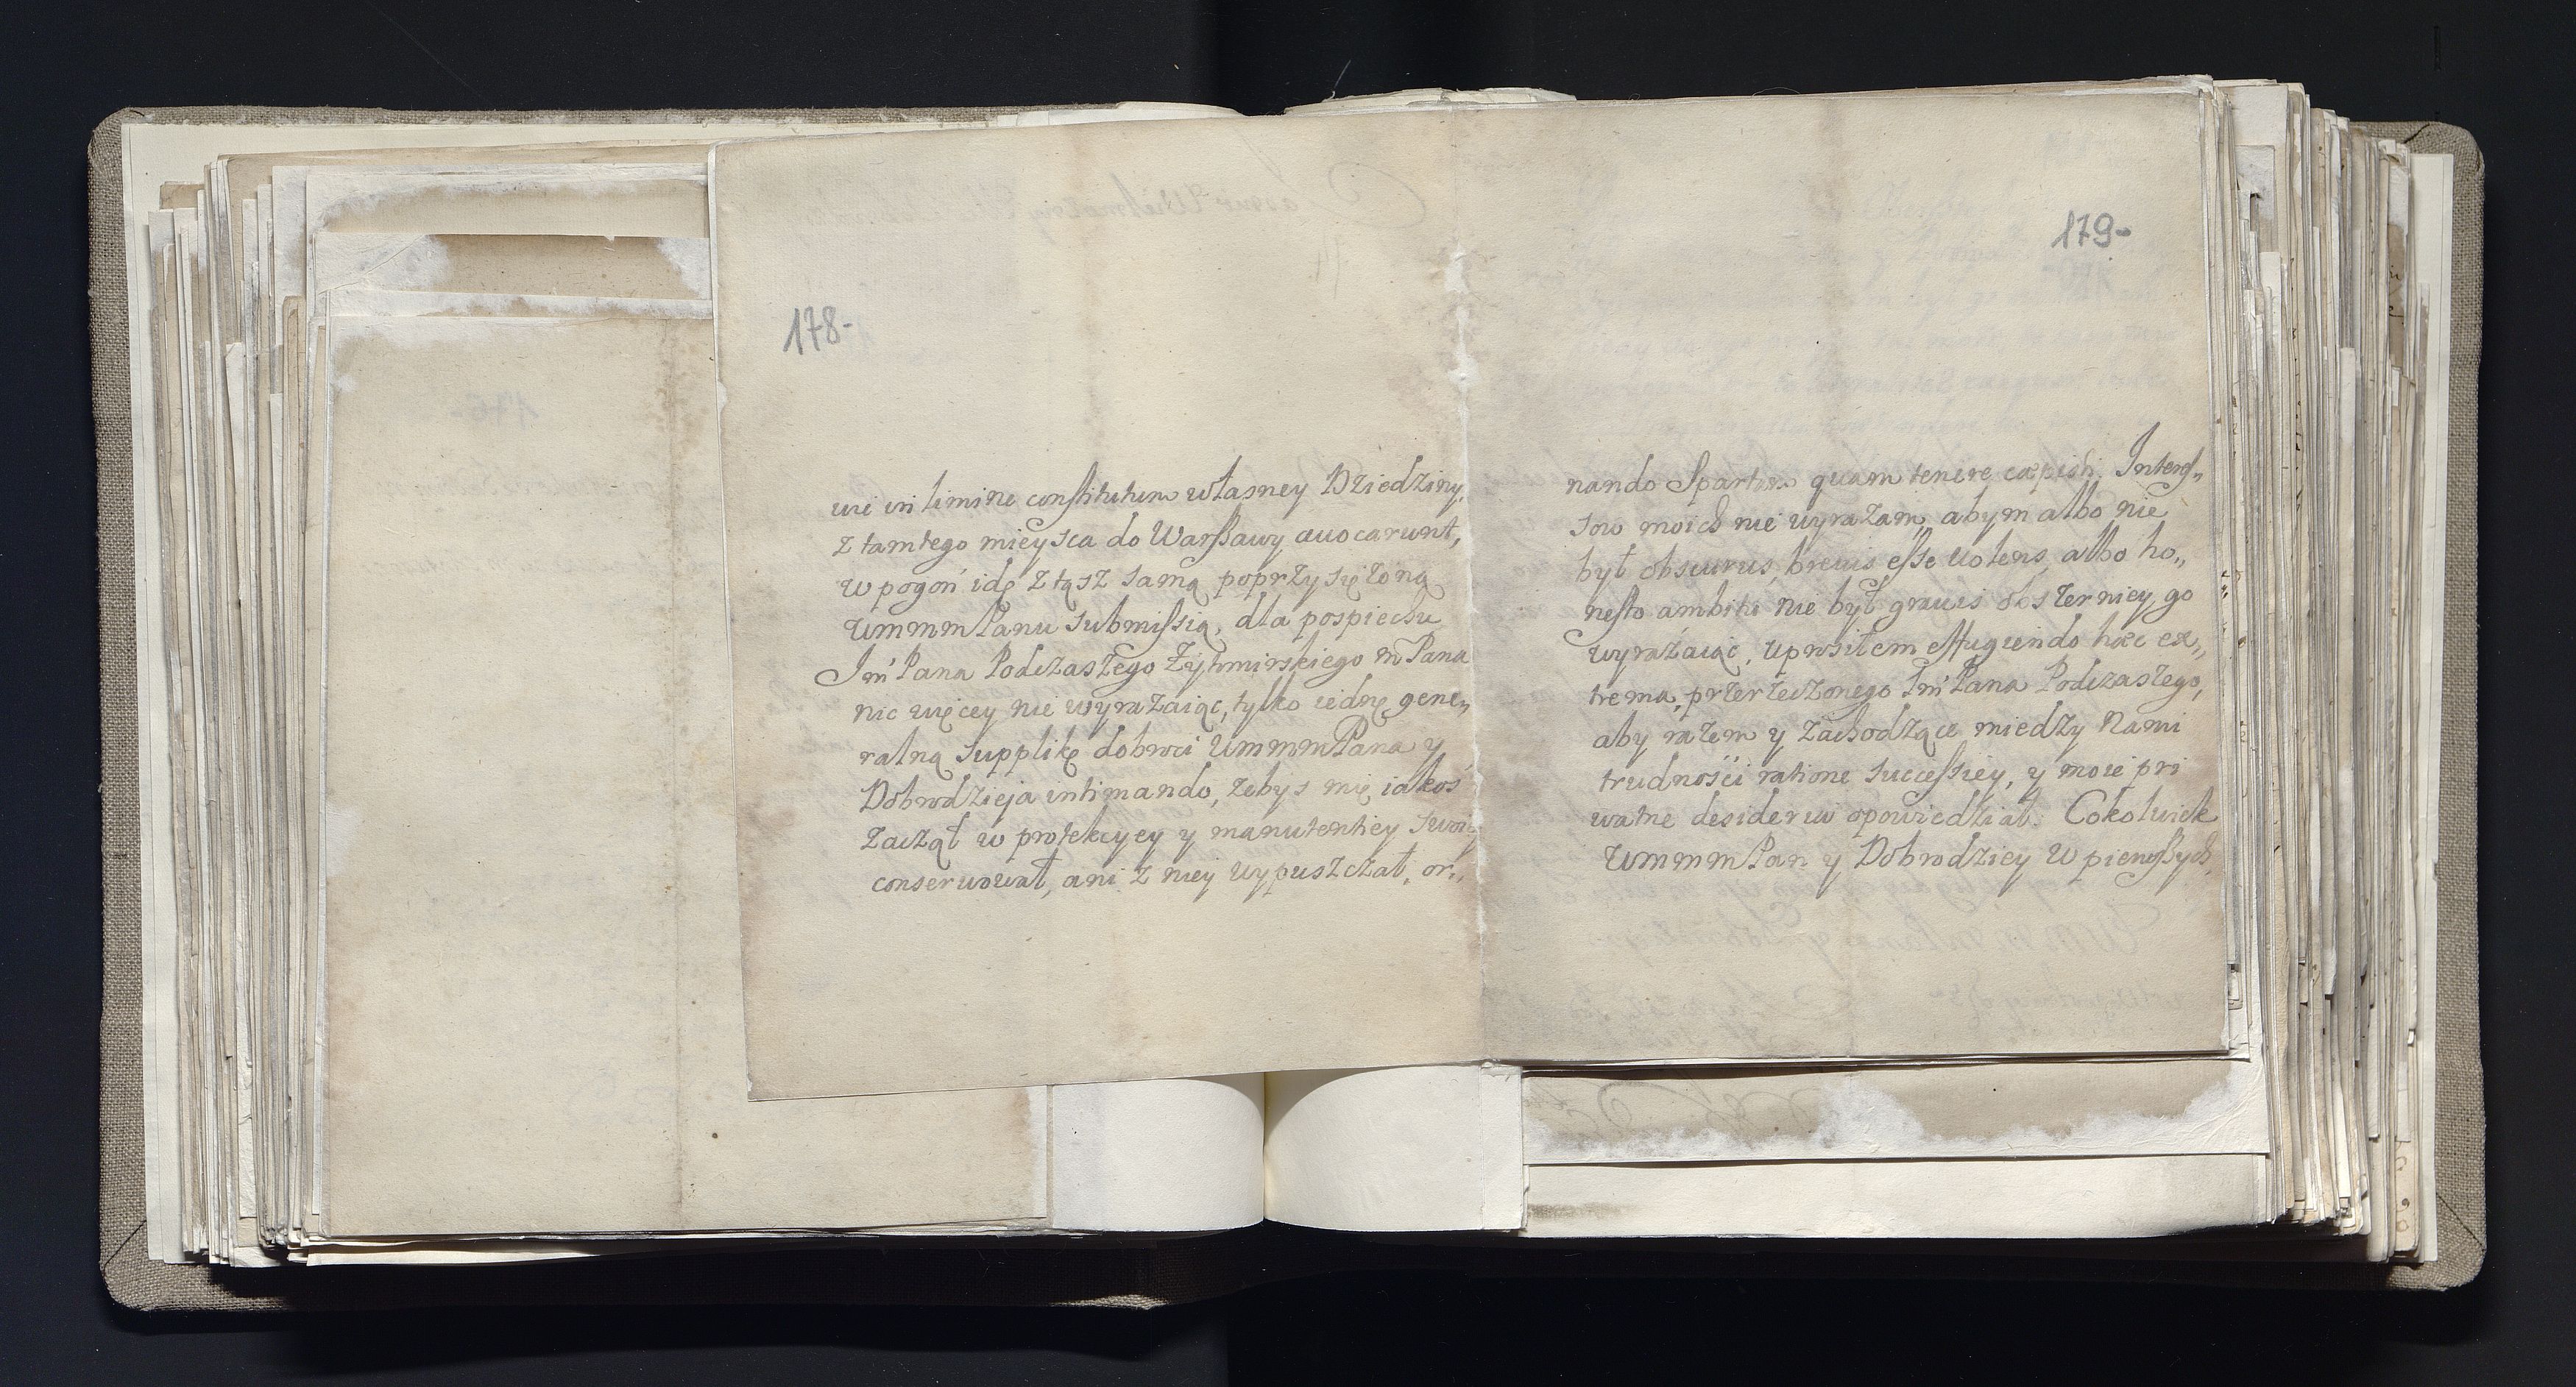 178-
wi in limine constitutum własney Dziedziny.
z tamtego mieysca do Warszawy avocarunt,
w pogoń idę z tąsz samą poprzysiężoną
WmmmPanu submissią, dla pospiechu
Jm' Pana Podczaszego Żytomirskiego m Pana
nic więcey nie wyrażaiąc, tylko iednę gene„
ralną supplikę dobroci WmmmPana y
Dobrodzieja intimando, żebyś mię iakoś
zaczął w protekcyey y manutentiey swoiey
conserwował, ani z niey wypuszczał, or„
179-
nando Spartam quam tenere cæpisti. Interes„
sow moich nie wyrażam, abym albo nie
był obscurus, brevis esse volens, albo ho„
nesto ambitu nie był gravis obszerniey go
wyrażaiąc, uprosiłem effugiendo hæc ex„
trema, przerzeczonego Jm' Pana Podczaszego,
aby razem y zachodzące miedzy Nami
trudności ratione successiey, y moie pri
watne desideria opowiedział. Cokolwiek
WmmmPan y Dobrodziey w pierwszych